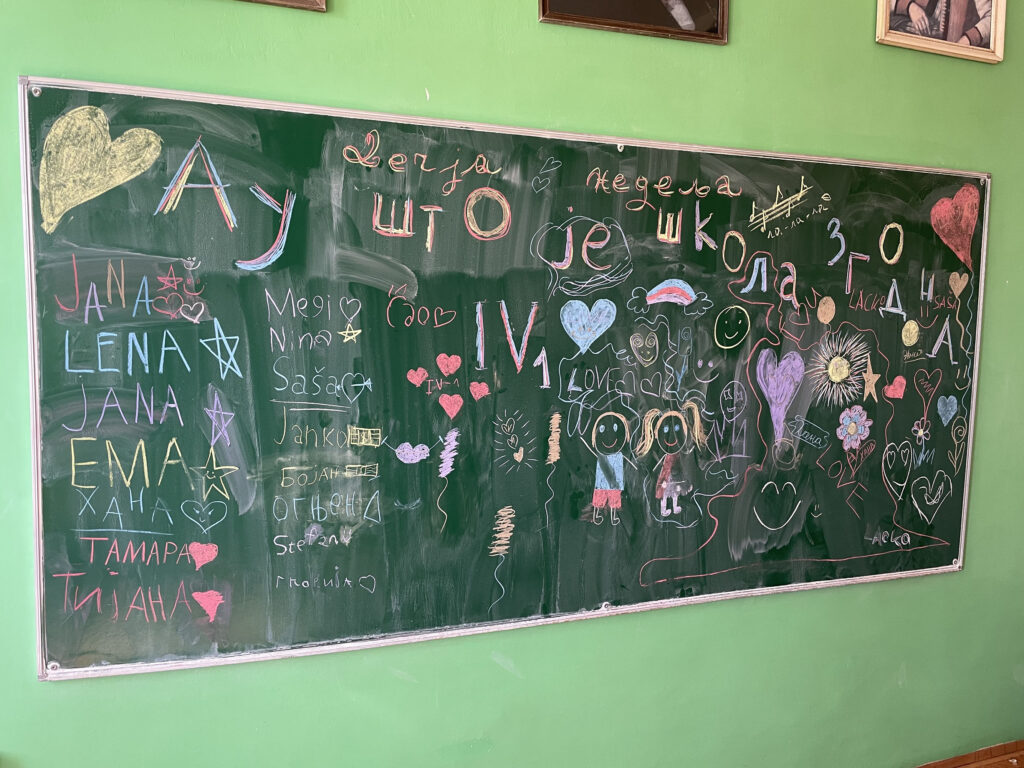 Дечја недеља
Ау што је школа згодна
JANA
LENA
JANA
EMA
ХАНА
ТАМАРА
ТИЈАНА
Megi
Nina
Saša
Janko
БОЈАН
ОГЊЕН
Stefan
Ćao
IV1
IV-1
LOVE
LOVE
SAŠA